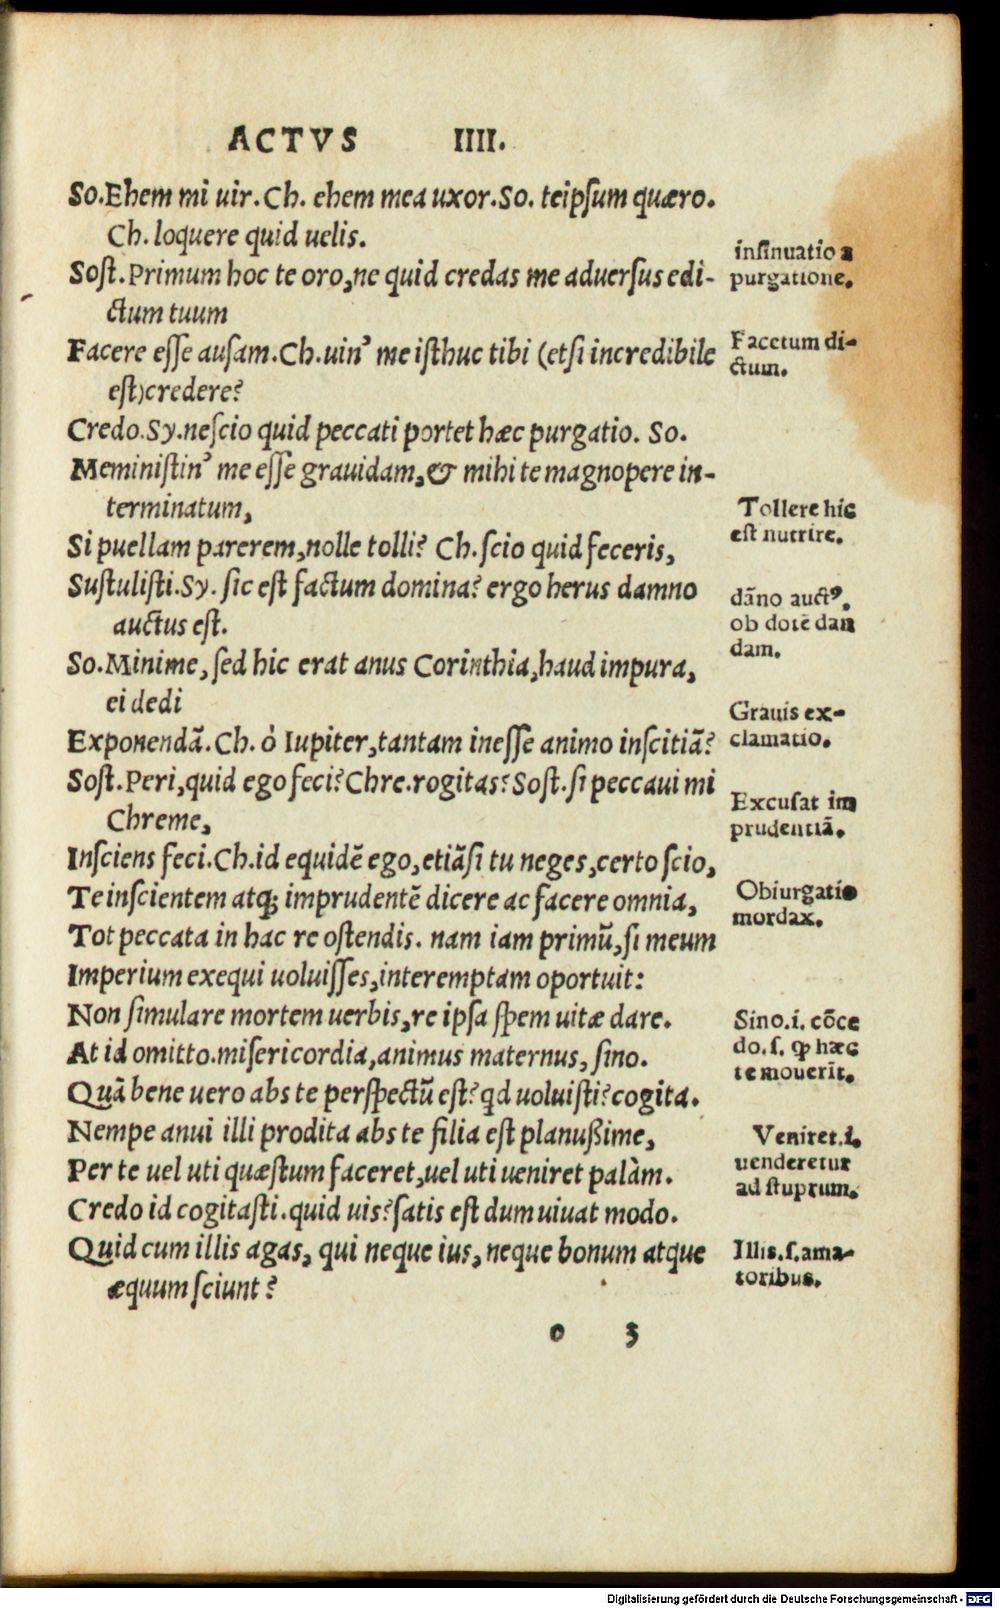 ACTVS IIII.
So.Ehem mi uir.Ch. ehem mea uxor.So. teipſum quæro.
Ch. loquere quid uelis.
Soſt.Primum hoc te oro,ne quid credas me aduerſus edi-
ctum tuum
Facere eſſe auſam.Ch.uin' me iſthuc tibi (etſi incredibile
eſt)credere?
Credo.Sy.neſcio quid peccati portet hæc purgatio. So.
Meminiſtin' me eſſe grauidam,& mihi te magnopere in-
terminatum,
Si puellam parerem,nolle tolli? Ch.ſcio quid feceris,
Suſtuliſti.Sy. ſic eſt factum domina? ergo herus damno
auctus eſt.
So.Minime, ſed hic erat anus Corinthia,haud impura,
ei dedi
Exponendā.Ch. ò Iupiter,tantam ineſſe animo inſcitiā?
Soſt.Peri,quid ego feci?Chre.rogitas?Soſt.ſi peccaui mi
Chreme,
Inſciens feci.Ch.id equidē ego,etiāſi tu neges,certo ſcio,
Te inſcientem atq; imprudentē dicere ac facere omnia,
Tot peccata in hac re oſtendis. nam iam primū,ſi meum
Imperium exequi uoluiſſes,interemptam oportuit:
Non ſimulare mortem uerbis,re ipſa ſpem uitæ dare.
At id omitto.miſericordia,animus maternus, ſino.
Quā bene uero abs te perſpectū eſt? qd uoluiſti?cogita.
Nempe anui illi prodita abs te filia eſt planußime,
Per te uel uti quæſtum faceret,uel uti ueniret palàm.
Credo id cogitaſti.quid uis?ſatis eſt dum uiuat modo.
Quid cum illis agas, qui neque ius, neque bonum atque
æquum ſciunt?
inſinuatio a
purgatione.
Facetum di-
ctum.
Tollere hic
eſt nutrire.
dāno auctꝰ.
ob dotē dan
dam.
Grauis ex-
clamatio.
Excuſat im
prudentiā.
Obiurgatio
mordax.
Sino.i. cōce
do.ſ. ꝙ hæc
te mouerīt.
Veniret.i.
uenderetur
ad ſtuprum.
Illis.ſ.ama-
toribus.
o 3
Digitalisierung gefördert durch die Deutsche Forschungsgemeinschaft - DFG